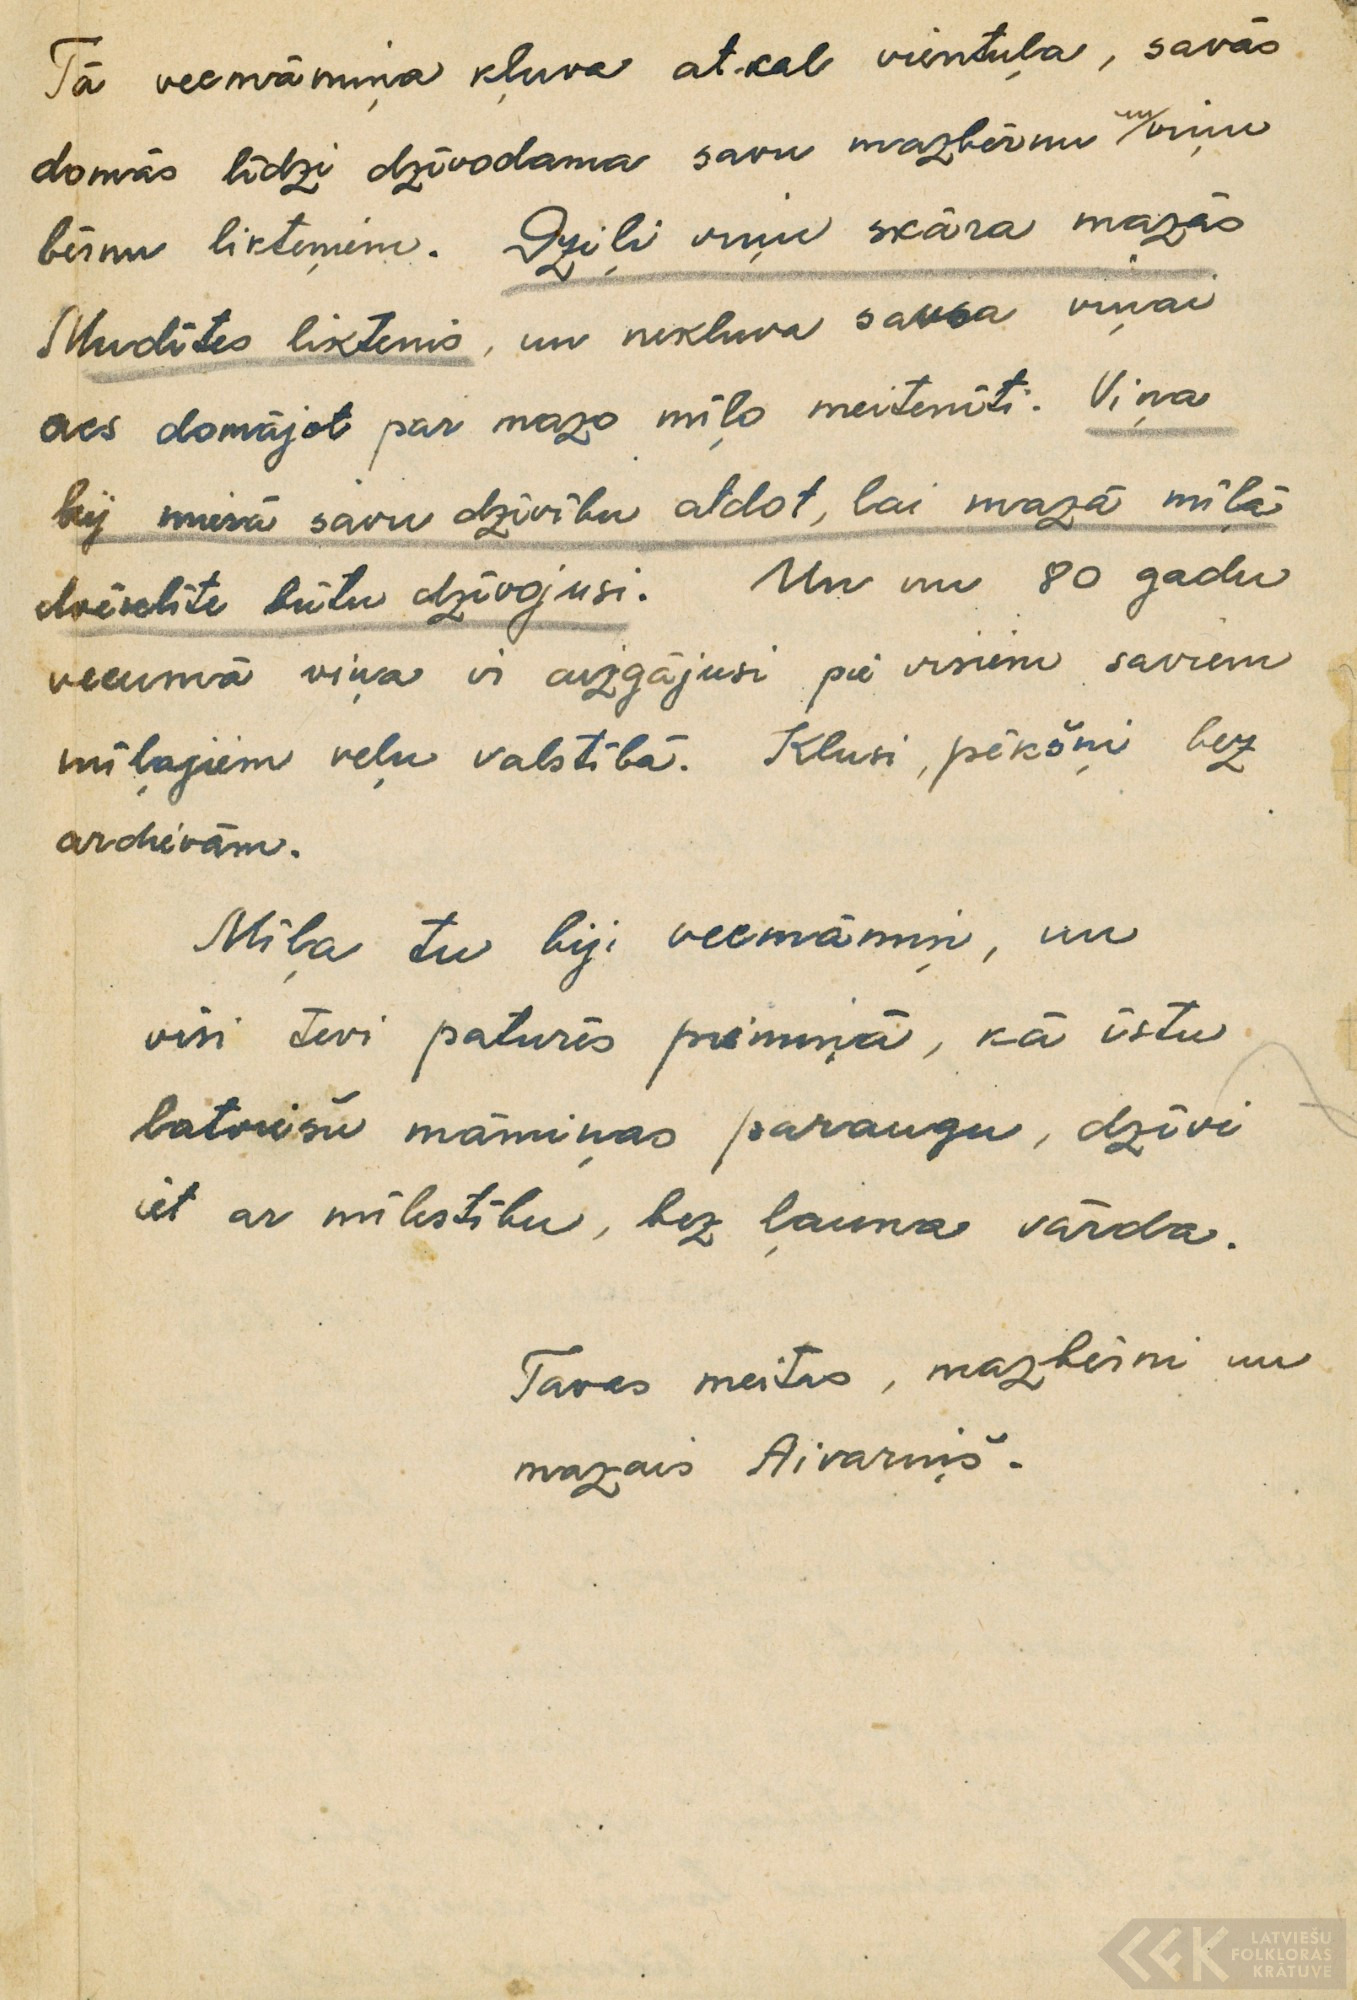 Tā vecmāmiņa kļuva atkal vientuļa, savās
domās līdzi dzīvodama savu mazbērnu un viņu
bērnu likteņiem. Dziļi viņu skāra mazās
Mudītes liktenis, un nekluva sausa viņai
acs domājot par mazo mīļo meitenīti. Viņa
bij mierā savu dzīvību atdot, lai mazā mīļā
dvēselīte būtu dzīvojusi. Un nu 80 gadu
vecumā viņa ir aizgājusi pie visiem saviem
mīļajiem veļu valstībā. Klusi, pēkšņi bez
ardievām.
Mīļa tu biji vecmāmiņ, un
visi tevi paturēs piemiņā, kā īstu
latviešu māmiņas paraugu, dzīvi
iet ar mīlestību, bez ļauna vārda.
Tavas meitas, mazbērni un
mazais Aivariņš.
LATVIEŠU
FOLKLORAS
KRĀTUVE